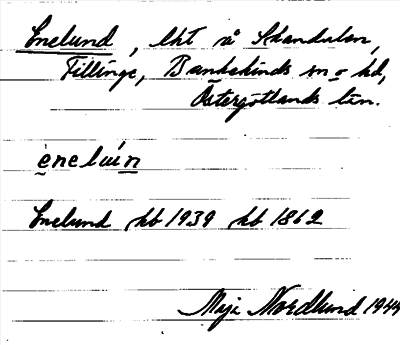 Enelund, lht å Skandalen,
Tillinge, Bankekinds sn o hd,
Östergötlands län.
enelun
Enelund kb 1939 hb 1862
Maja Nordlund 1944